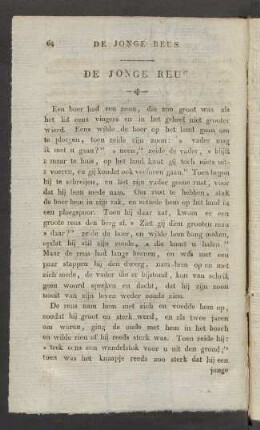 64 DE JONGE REUS.
DE JONGE REUS
Een boer had een zoon, die zoo groot was als
het lid eens vingers en in het geheel niet grooter
wierd. Eens wilde de boer op het land gaan om
te ploegen, toen zeide zijn zoon: » vader mag
ik met u gaan?" » neen," zeide de vader, » blijf
maar te huis, op het land kunt gij toch niets uit-
voeren, en gij kondet ook verloren gaan." Toen begon
hij te schreijen, en liet zijn vader geene rust, voor
dat hij hem mede nam. Om rust te hebben, stak
de boer hem in zijn zak, en zettede hem op het land in
een ploegspoor. Toen hij daar zat, kwam er een
groote reus den berg af. » Ziet gij dien grooten reus
daar?" zeide de boer, en wilde hem bang maken,
opdat hij stil zijn zoude, » die komt u halen."
Maar de reus had lange beenen, en was met een
paar stappen bij den dwerg, nam hem op en met
zich mede, de vader die er bijstond, kon van schrik
geen woord spreken en dacht, dat hij zijn zoon
nooit van zijn leven weder zoude zien.
De reus nam hem met zich en voedde hem op,
zoodat hij groot en sterk werd, en als twee jaren
om waren, ging de oude met hem in het bosch
en wilde zien of hij reeds sterk was. Toen zeide hij:
» trek eens een wandelstok voor u uit den grond,"
toen was het knaapje reeds zoo sterk dat hij een
jonge